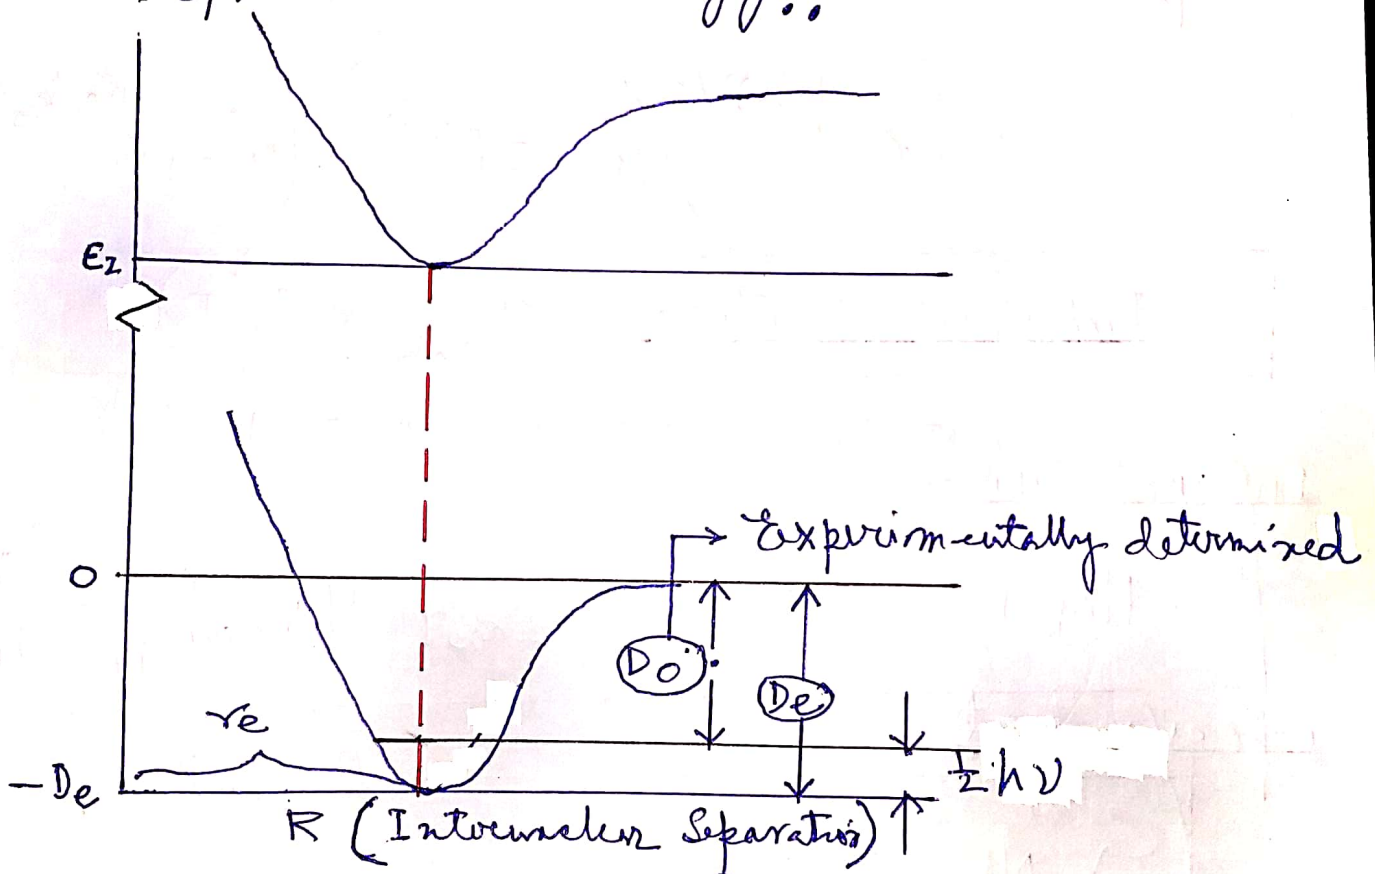 ε₂
Experimentally determined
0
D₀
De
re
½ hν
-De
R (Internuclear Separation)